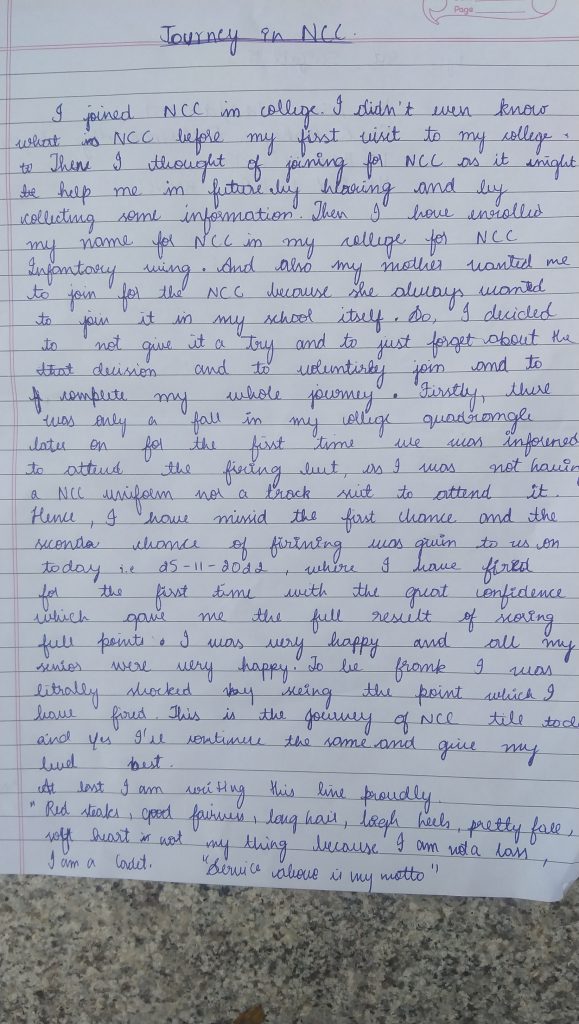 Page
Journey in NCC.
I joined NCC in college. I didn't even know
what is NCC before my first visit to my college.
to There I thought of joining for NCC as it might
be help me in future by hearing and by
collecting some information. Then I have enrolled
my name for NCC in my college for NCC
Infantary wing. And also my mother wanted me
to join for the NCC because she always wanted
to join it in my school itself. So, I decided
to not give it a try and to just forget about the
that decision and to volentirly join and to
complete my whole journey. Firstly, there
was only a fall in my college quadrangle
later on for the first time we was informed
to attend the firing but, as I was not havin
a NCC uniform nor a track suit to attend it.
Hence, I have missid the first chance and the
seconda chance of firining was givin to us on
today i.e 25-11-2022, where I have fired
for the first time with the great confidence
which gave me the full result of scoring
full points. I was very happy and all my
senior were very happy. To be frank I was
litrally shocked by seeing the point which I
have fired. This is the journey of NCC till tod
and yes I'll continue the same and give my
best.
At last I am writing this line proudly.
"Red steaks, good fairness, long hair, heels, pretty face,
soft heart is not my thing because I am not a lass,
I am a Cadet. "Service above is my motto"